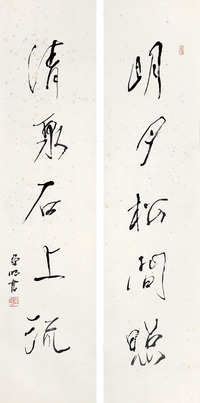 明月松間照
清泉石上流
亚明書